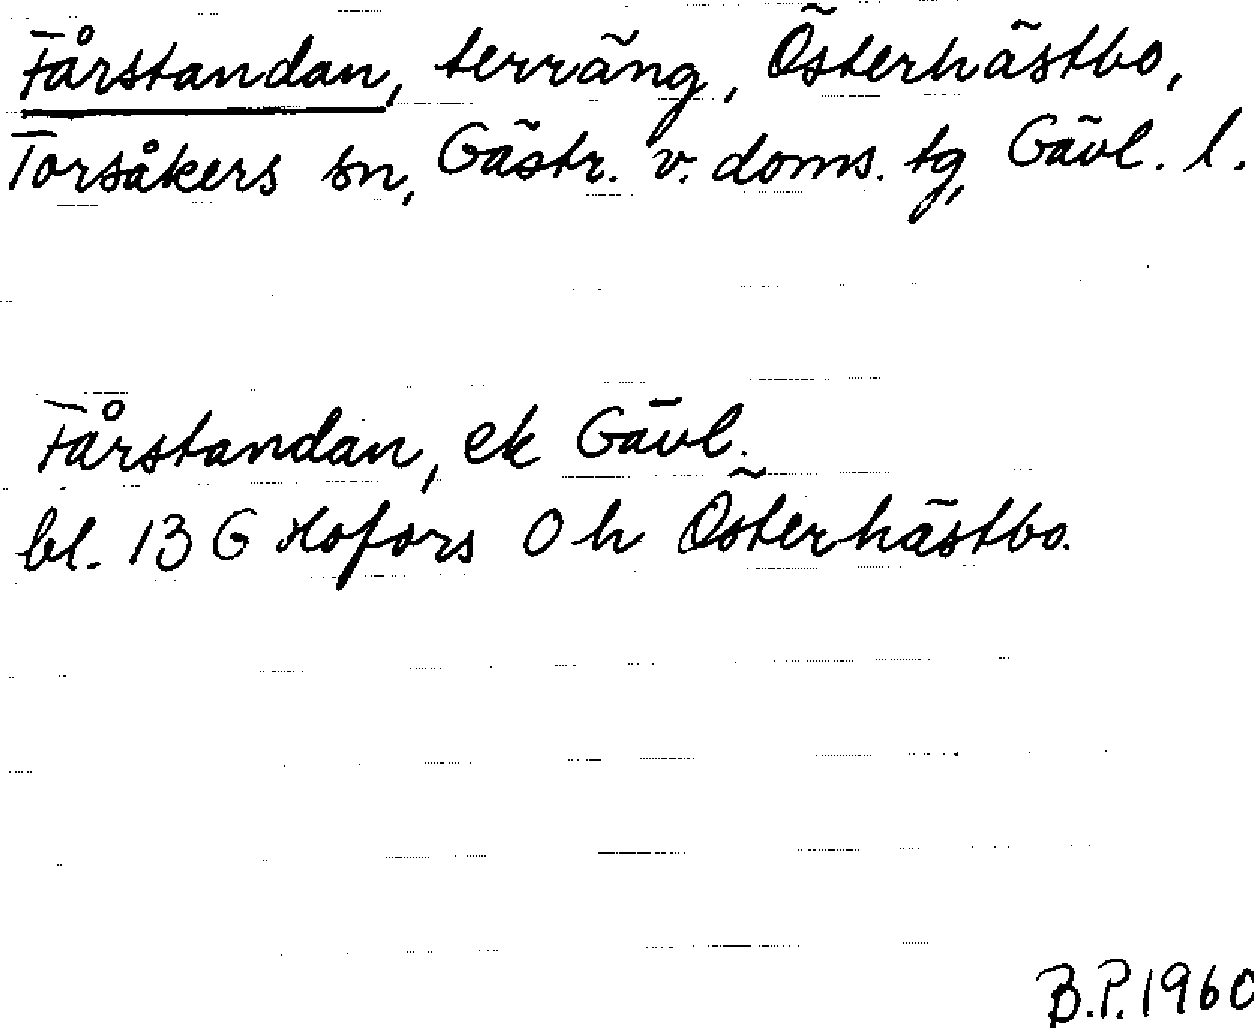 Fårstandan, terräng, Österhästbo,
Torsåkers sn, Gästr. v. doms. tg, Gävl. l.
Fårstandan, ek Gävl.
bl. 13 G Hofors O h Österhästbo.
B.P. 1960